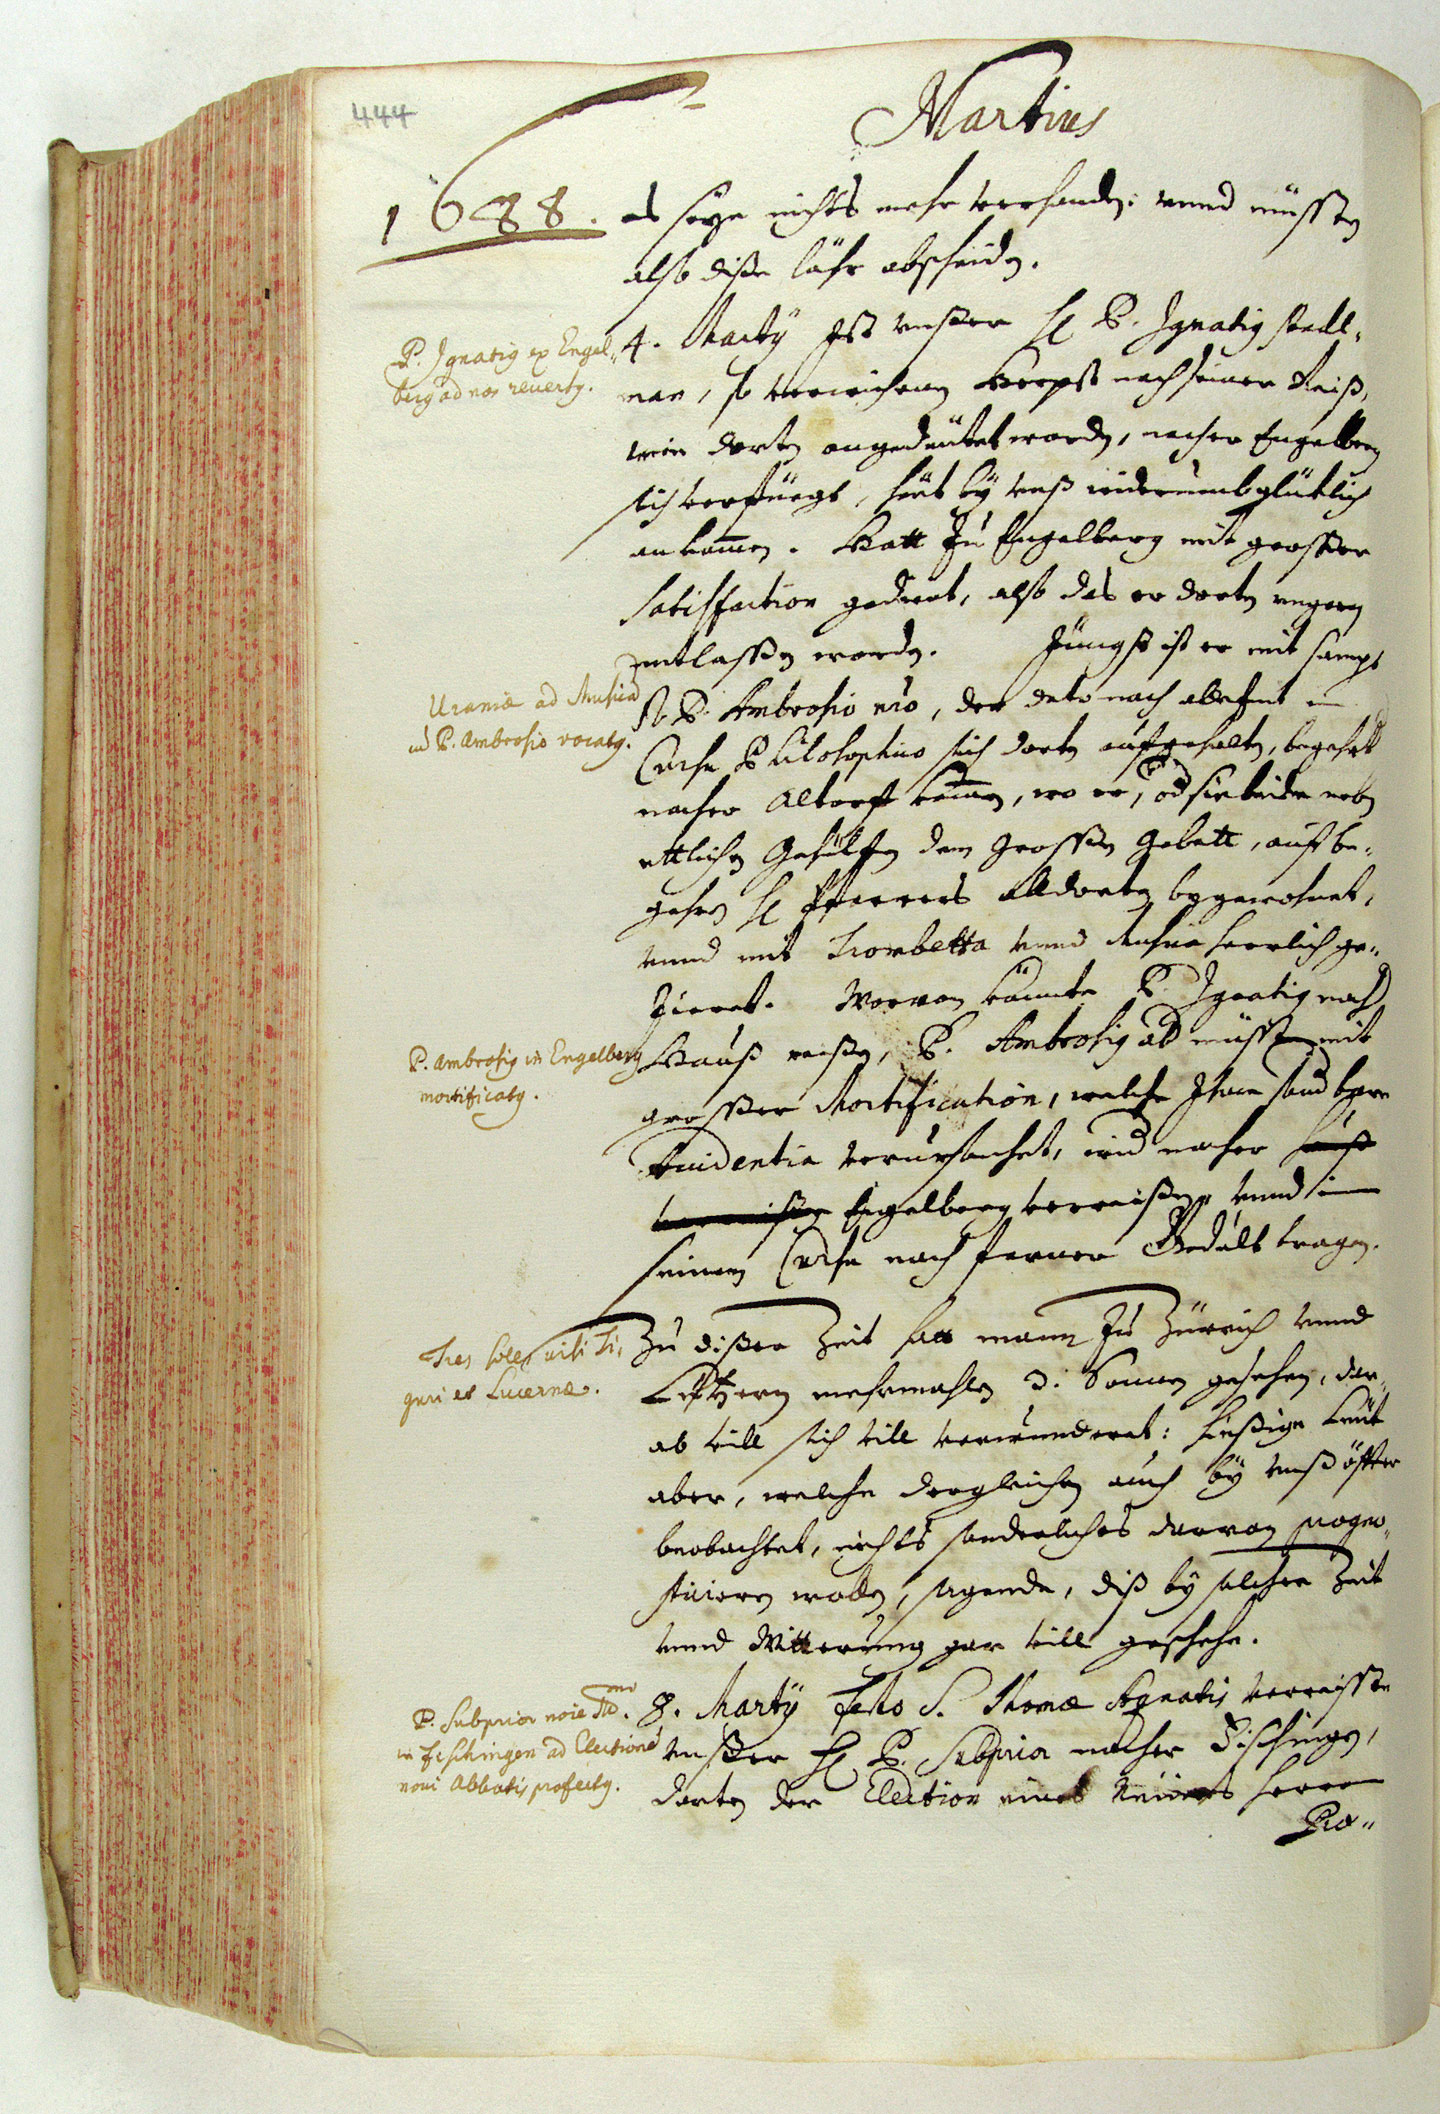 444
Martius
1688. als seye nichts mehr verhanden: vnnd müssten
also dise lähr abscheiden.
P. Ignatig ex Engel-
berg ad nos reuertg.
4. Martÿ Ist vnser H P. Ignatig Stadl-
man, so verwichnen Herpst nach seiner Reiß,
wie dorten angedeütet worden, nacher Engelberg
sich verfüegt, heüt bÿ vnß widerumb glüklich
ankommen. Hatt zu Engelberg mit grosser
Satisfaction gedient, also das er dorten vngern
entlassen worden. Jüngst ist er mit sampt
Uraniæ ad Musicã
cũ P. Ambrosio vocatg.
P. Ambrosio nro, der dato noch alls ein
Curse Philosophico sich dorten aufgehalten, begehrt
nacher Altorff kommen, wo er, od sie beide nebn
ettlichen Gehülffen dem Grossen Gebett, auf be-
gehrn H Pfarrers alldorten bygewohnet,
vnnd mit Trombetta vnnd Music herrlich ge-
zieret. Worvon könnte P. Ignatig nach
P. Ambrosig in Engelberg
mortificatg.
Hauß reisen, P. Ambrosig ab müsste mit
grosser Mortification, welche Ihme sond bare
Accidentia verursachet, wid nacher
Engelberg verreisen, vnnd in
seinem Curse noch ferner Gedult tragen.
Tres soles visi Ti-
guri et Lucernæ.
Zu diser Zeit hatt mann zu Zürich vnnd
Lutzern mehrmahlen 3. Sonnen gesehen, dar-
ab vill sich vill verwunderet: hiesige Leüt
aber, welche dergleichen auch bÿ vnß öffter
beobachtet, nichts sonderliches darvon progno-
sticieren wollen, sagende, diß bÿ solcher Zeit
vnnd Witterung gar vill geschehe.
P. Subprior noie Rmi D.
in Fischingen ad Electionẽ
novi Abbatis profectg.
8. Martÿ Festo S. Thomæ Aquinatis verreisste
vnser H P. Subprior nacher Fischingen,
dorten der Election eines neüwes Herren
Præ-